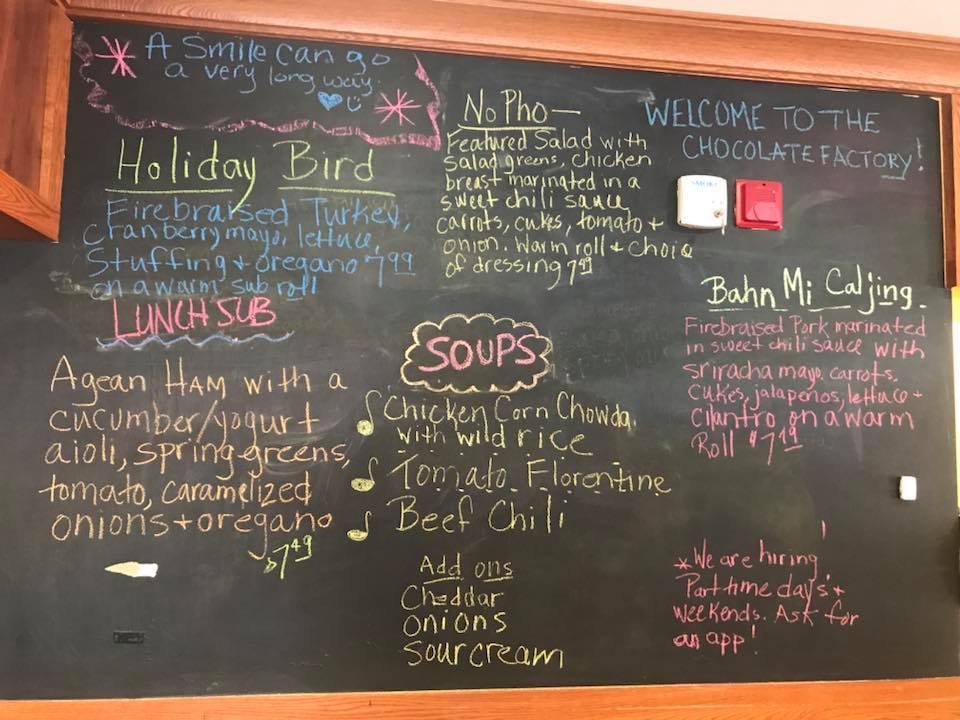 A Smile can go
a very long way.
Holiday Bird
Firebraised Turkey,
Cranberry mayo, lettuce,
Stuffing + oregano 7.99
on a warm sub roll
LUNCH SUB
Agean HAM with a
cucumber/yogurt
aioli, spring greens,
tomato, caramelized
onions + oregano
$7.49
No Pho—
Featured Salad with
salad greens, chicken
breast marinated in a
sweet chili sauce
carrots, cukes, tomato +
onion. Warm roll + choice
of dressing 7.99
SOUPS
Chicken Corn Chowda
with wild rice
Tomato Florentine
Beef Chili
Add ons
Cheddar
onions
sour cream
WELCOME TO THE
CHOCOLATE FACTORY!
SMOKE
Bahn Mi Caljing
Firebraised Pork marinated
in sweet chili sauce with
sriracha mayo, carrots,
cukes, jalapenos, lettuce +
cilantro on a warm
Roll $7.49
*We are hiring
Part time day's +
weekends. Ask for
an app!